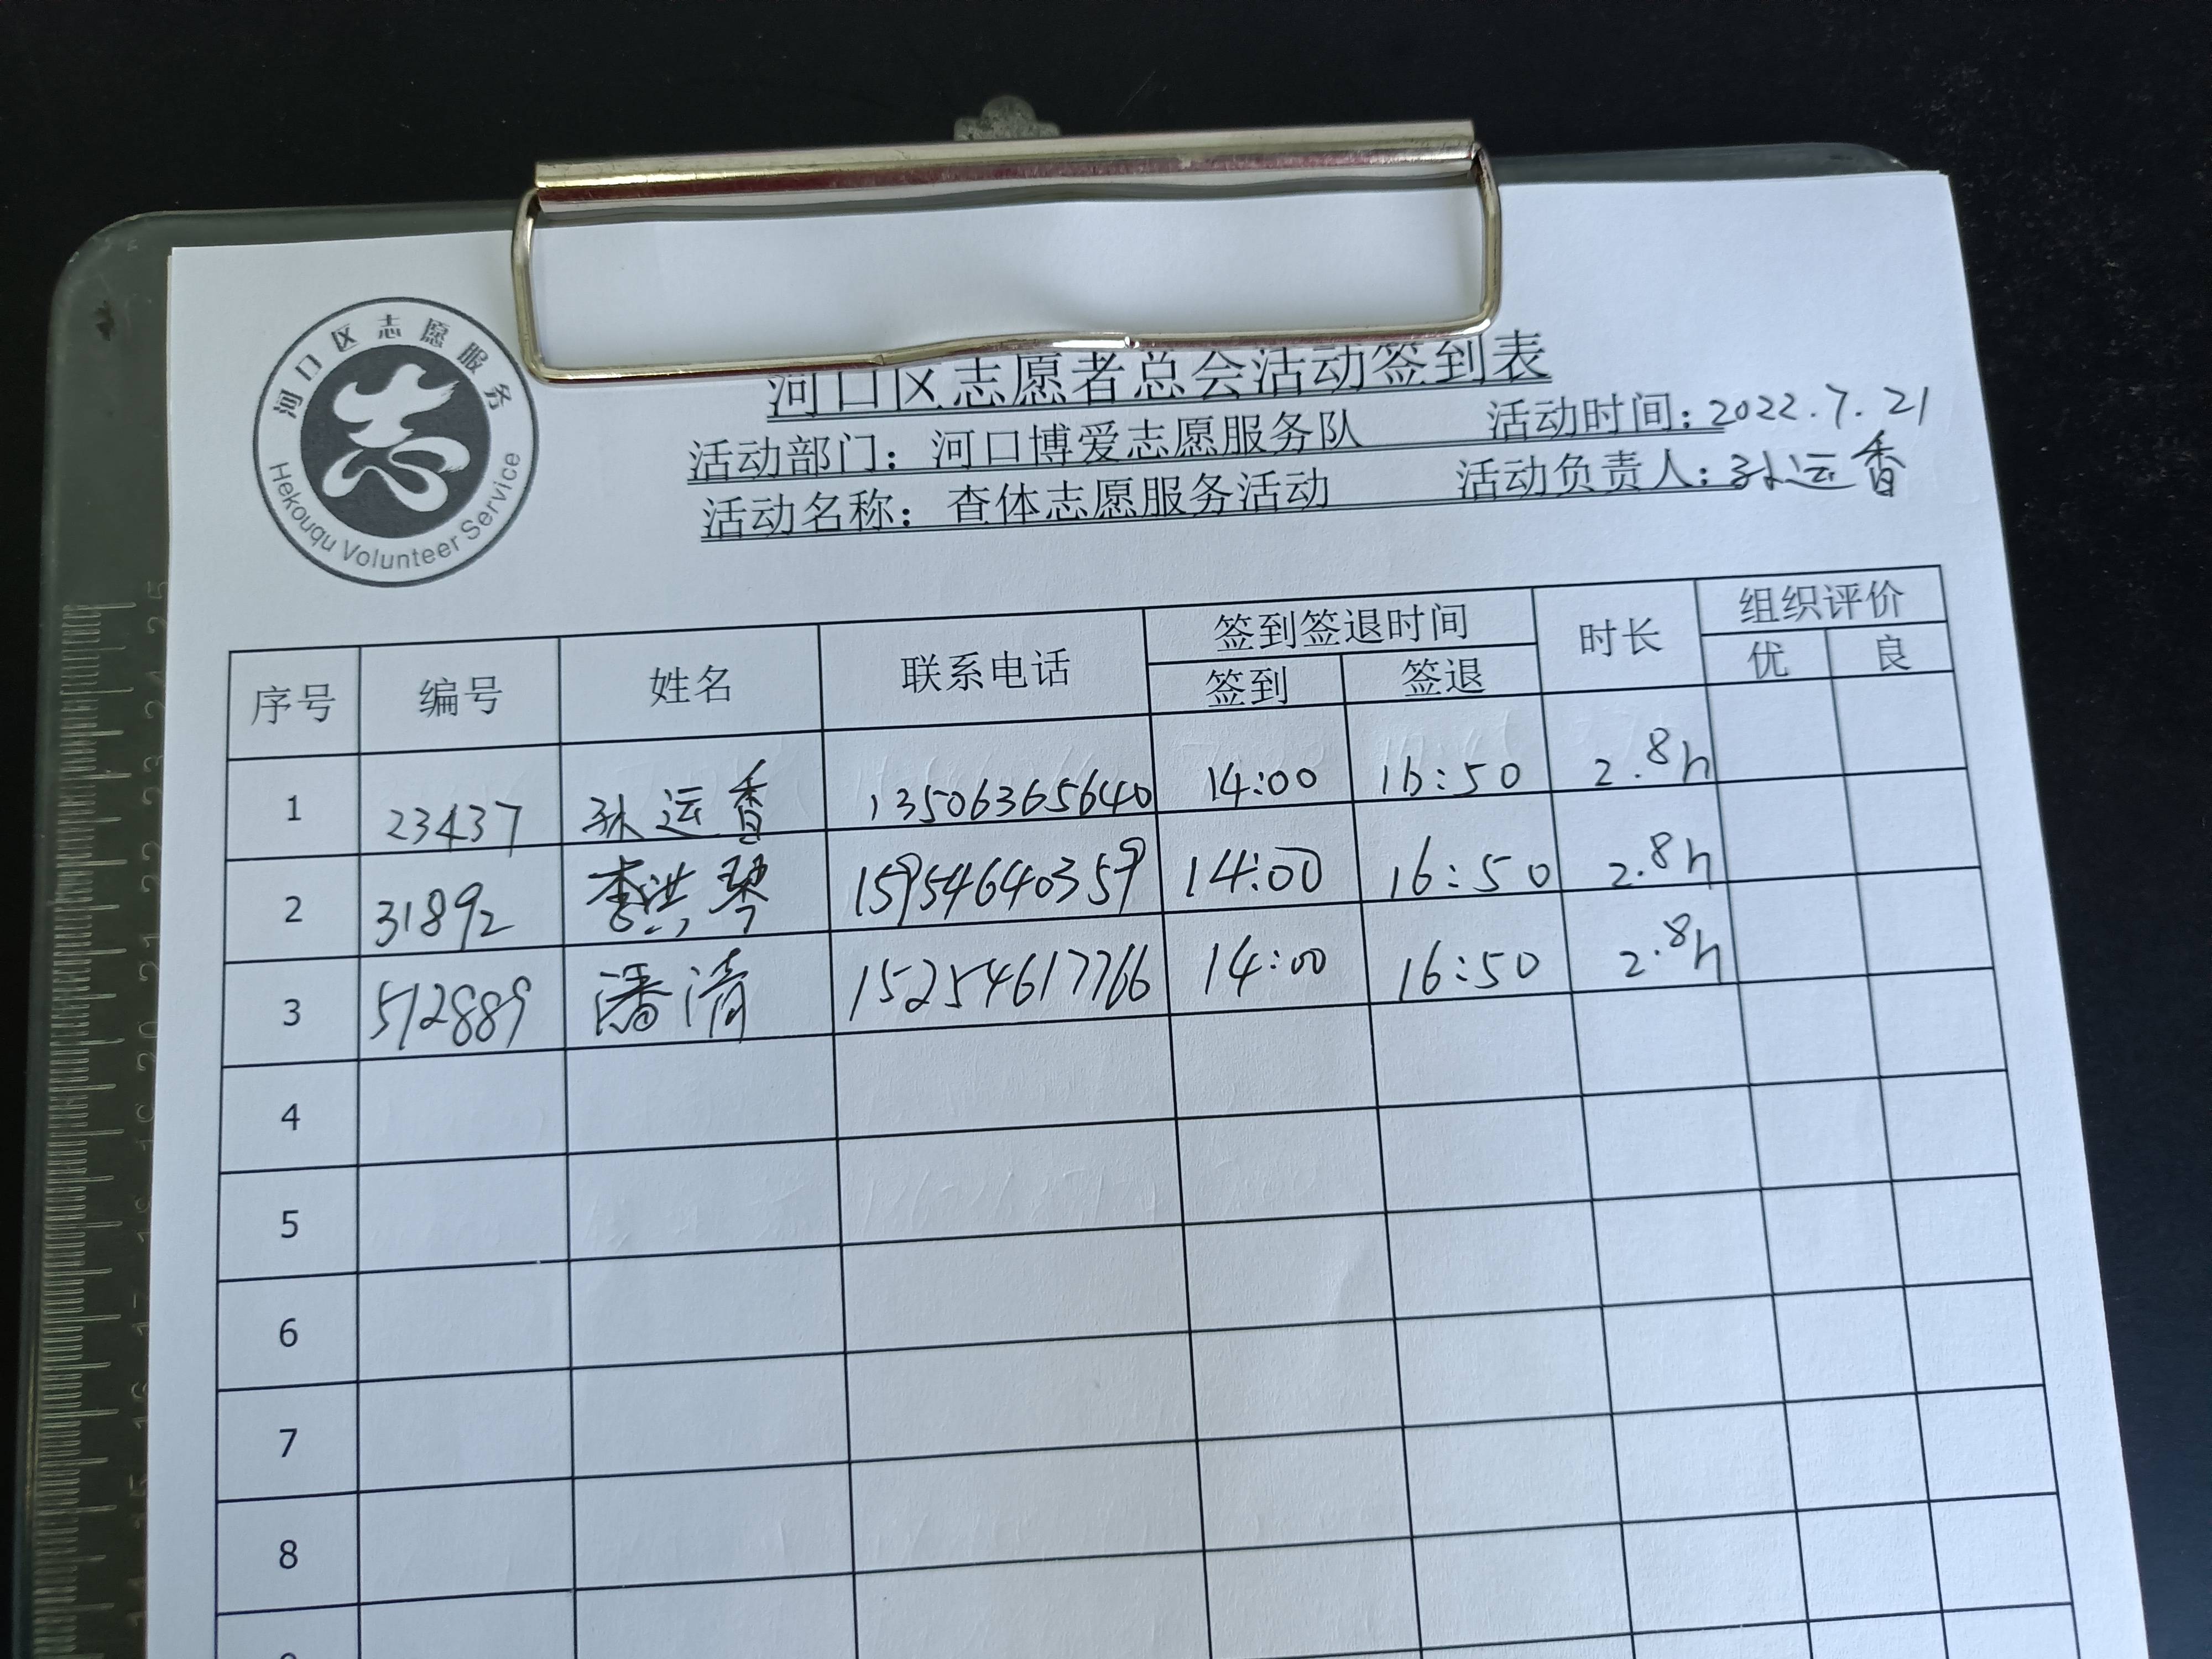 河口区志愿服务
Hekouqu Volunteer Service
河口区志愿者总会活动签到表
活动部门：河口博爱志愿服务队 活动时间：2022.7.21
活动名称：查体志愿服务活动 活动负责人：孙运香
序号 编号 姓名 联系电话 签到签退时间 时长 组织评价
签到 签退 优 良
1 23437 孙运香 13506365640 14:00 16:50 2.8h
2 31892 李洪琴 15954640359 14:00 16:50 2.8h
3 512889 潘清 15254617766 14:00 16:50 2.8h
4
5
6
7
8